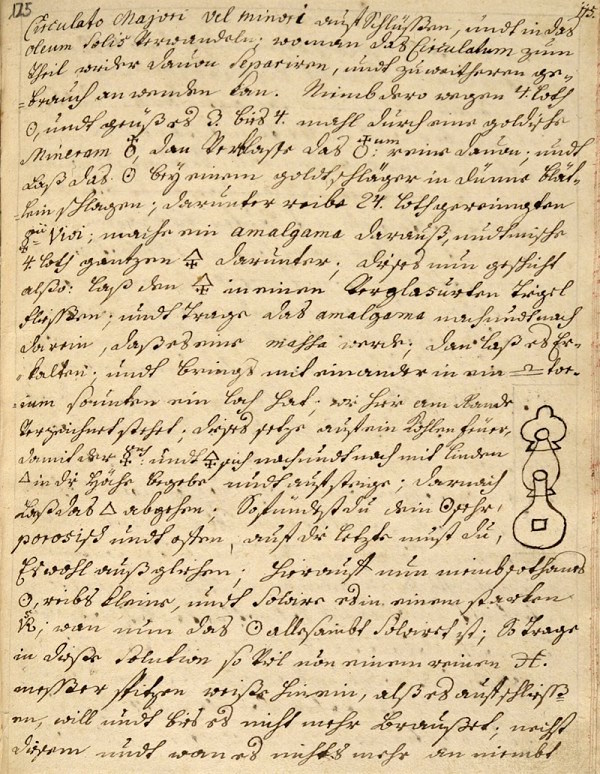 125 175.
Circulato Majori vel minori auffschlüssen, undt in das
oleum Solis verwandeln; woman das Circulatum zum
theil wider davon Separiren, undt zu weitheren ge-
brauch anwenden kan. Nimb derowegen 4. loth
☉, undt geüß es 3. bis 4. mahl durch eine goldische
Mineram ♁, dan verblasse das ♁um: reine davon; undt
laß das ☉ bey einem goldtschlager in dünne blät-
lein schlagen; darunter reibe 24. loth gereinigten
☿ii Vivi; mache ein amalgama darauß, undt mische
4. loth gantzen 🜍 darunter; dises nun geschicht
alßo: laß den 🜍 in einen verglasurten tigel
fliessen; undt trage das amalgama nach undt nach
darein, daß es eine massa werde; dan laß es er-
kalten; undt brings mit einander in ein
unten ein loch hat; wie hier am Rande
verzeichnet stehet; dises setze auff ein Kohlen feüer,
damit der ☿ undt 🜍 sich nach undt nach mit linden
🜂 in die Höhe begebe undt auffsteige; darnach
laß das 🜂 abgehen; So findest du dein ☉ sehr
porosisch undt offen, auff die letzte must du
Es wohl außglehen; hierauff nun nimb
☉, reibs kleine, undt Solvire es in einem starken
wan nun das ☉ allesambt Solvirt ist; So trage
in diese Solution so vil von einem reinen
messer spitzen weiße hinein, alß es auffschliess-
en, will undt bis es nicht mehr brauset; nechst
disem undt wan es nichts mehr an nimbt